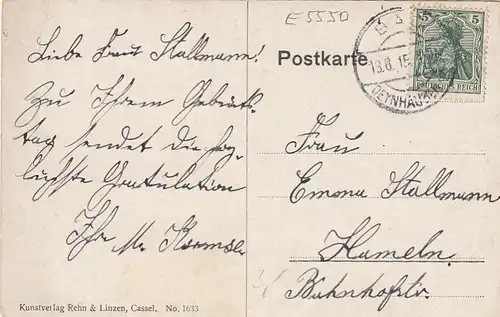 E 5550
Liebe Frau Stallmann!
Zu Ihrem Geburts-
tag sendet die herz-
lichste Gratulation
Ihr M.
Postkarte
5 5
DEUTSCHES REICH
BAD
13.8.15
OEYNHAUSEN
Frau
Emma Stallmann
Hameln.
Bahnhofstr.
Kunstverlag Rehn & Linzen, Cassel. No. 1633